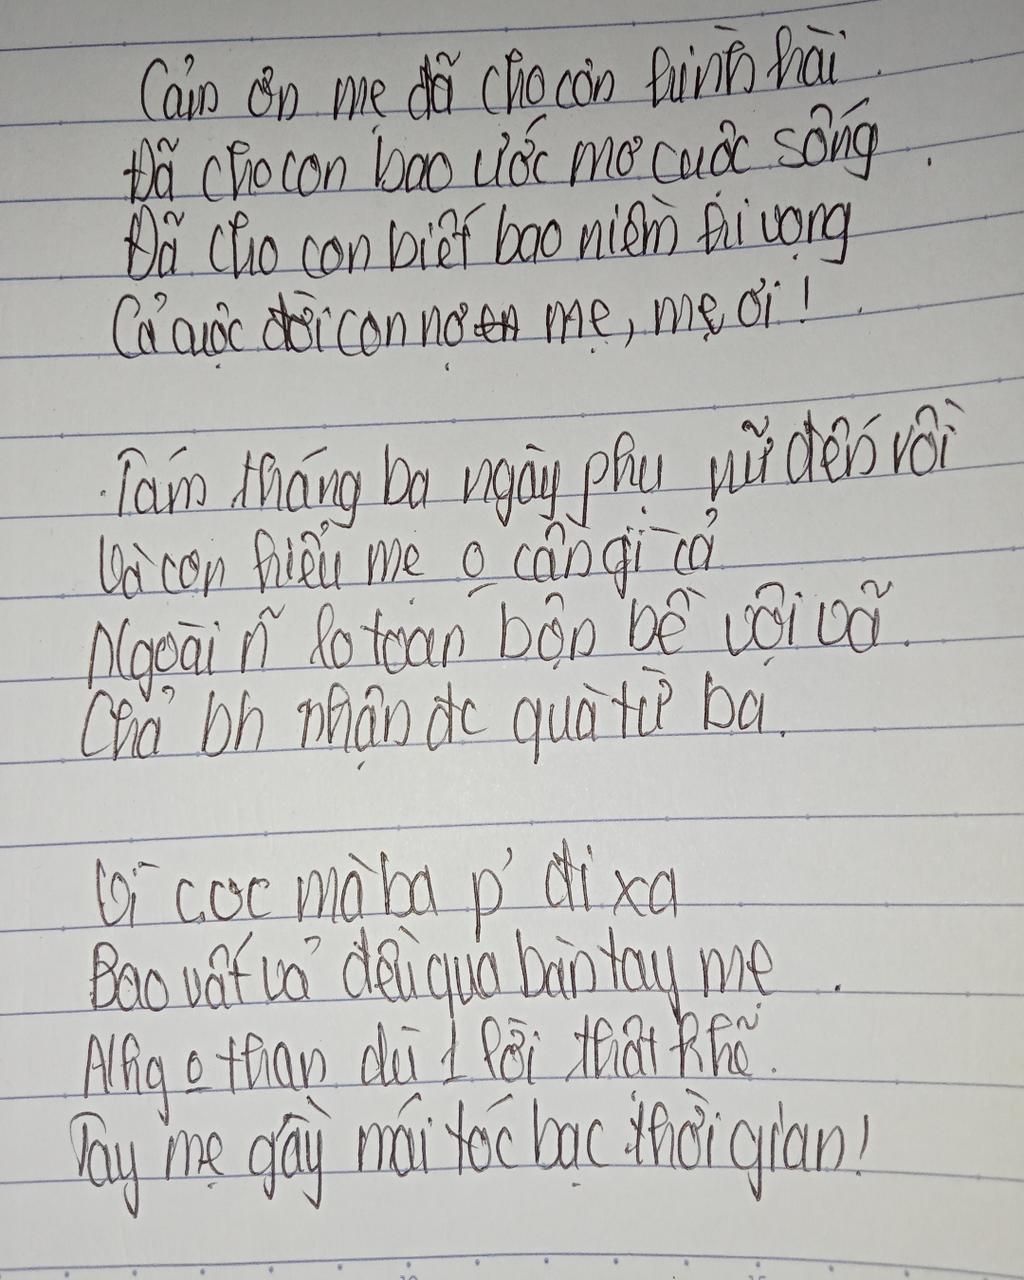 Cảm ơn mẹ đã cho con hình hài.
Đã cho con bao ước mơ cuộc sống.
Đã cho con biết bao niềm hi vọng
Cả cuộc đời con nợ mẹ, mẹ ơi!
Tám tháng ba ngày phụ nữ đến rồi
Và con hiểu mẹ o cần gì cả
Ngoài n~ lo toan bộn bề vội vã.
Chả bh nhận đc quà từ ba.
Vì cơc mà ba p' đi xa
Bao vất vả đều qua bàn tay mẹ.
Nhg o than dù 1 lời thật khẽ.
Tay mẹ gầy mái tóc bạc thời gian!